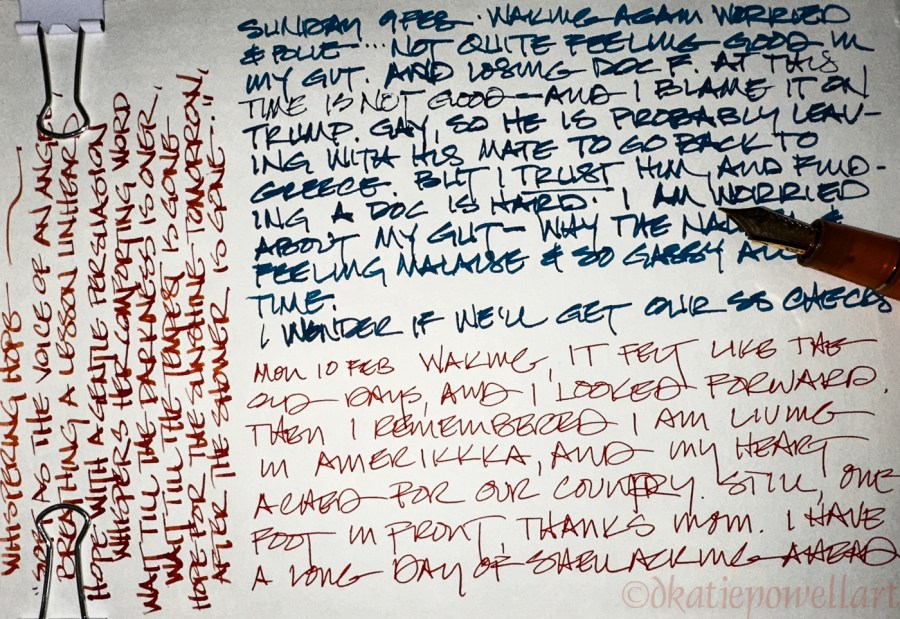 SUNDAY 9 FEB · WAKING AGAIN WORRIED
& BLUE ... NOT QUITE FEELING GOOD IN
MY GUT. AND LOSING DOC F. AT THIS
TIME IS NOT GOOD — AND I BLAME IT ON
TRUMP. GAY, SO HE IS PROBABLY LEAV-
ING WITH HIS MATE TO GO BACK TO
GREECE. BUT I TRUST HIM, AND FIND-
ING A DOC IS HARD. I AM WORRIED
ABOUT MY GUT — WHY THE &
FEELING MALAISE & SO GASSY
TIME.
I WONDER IF WE'LL GET OUR SS CHECKS
MON 10 FEB WAKING, IT FELT LIKE THE
OLD DAYS, AND I LOOKED FORWARD.
THEN I REMEMBERED I AM LIVING
IN AMERIKKKA, AND MY HEART
ACHED FOR OUR COUNTRY. STILL, ONE
FOOT IN FRONT, THANKS MOM. I HAVE
A LONG DAY OF SHELLACKING AHEAD
WHISPERING HOPE —
"SOFT AS THE VOICE OF AN ANGEL,
BREATHING A LESSON UNHEARD
HOPE WITH A GENTLE PERSUASION
WHISPERS HER COMFORTING WORD
WAIT TILL THE DARKNESS IS OVER,
WAIT TILL THE TEMPEST IS GONE
HOPE FOR THE SUNSHINE TOMORROW,
AFTER THE SHOWER IS GONE..."
©dkatiepowellart